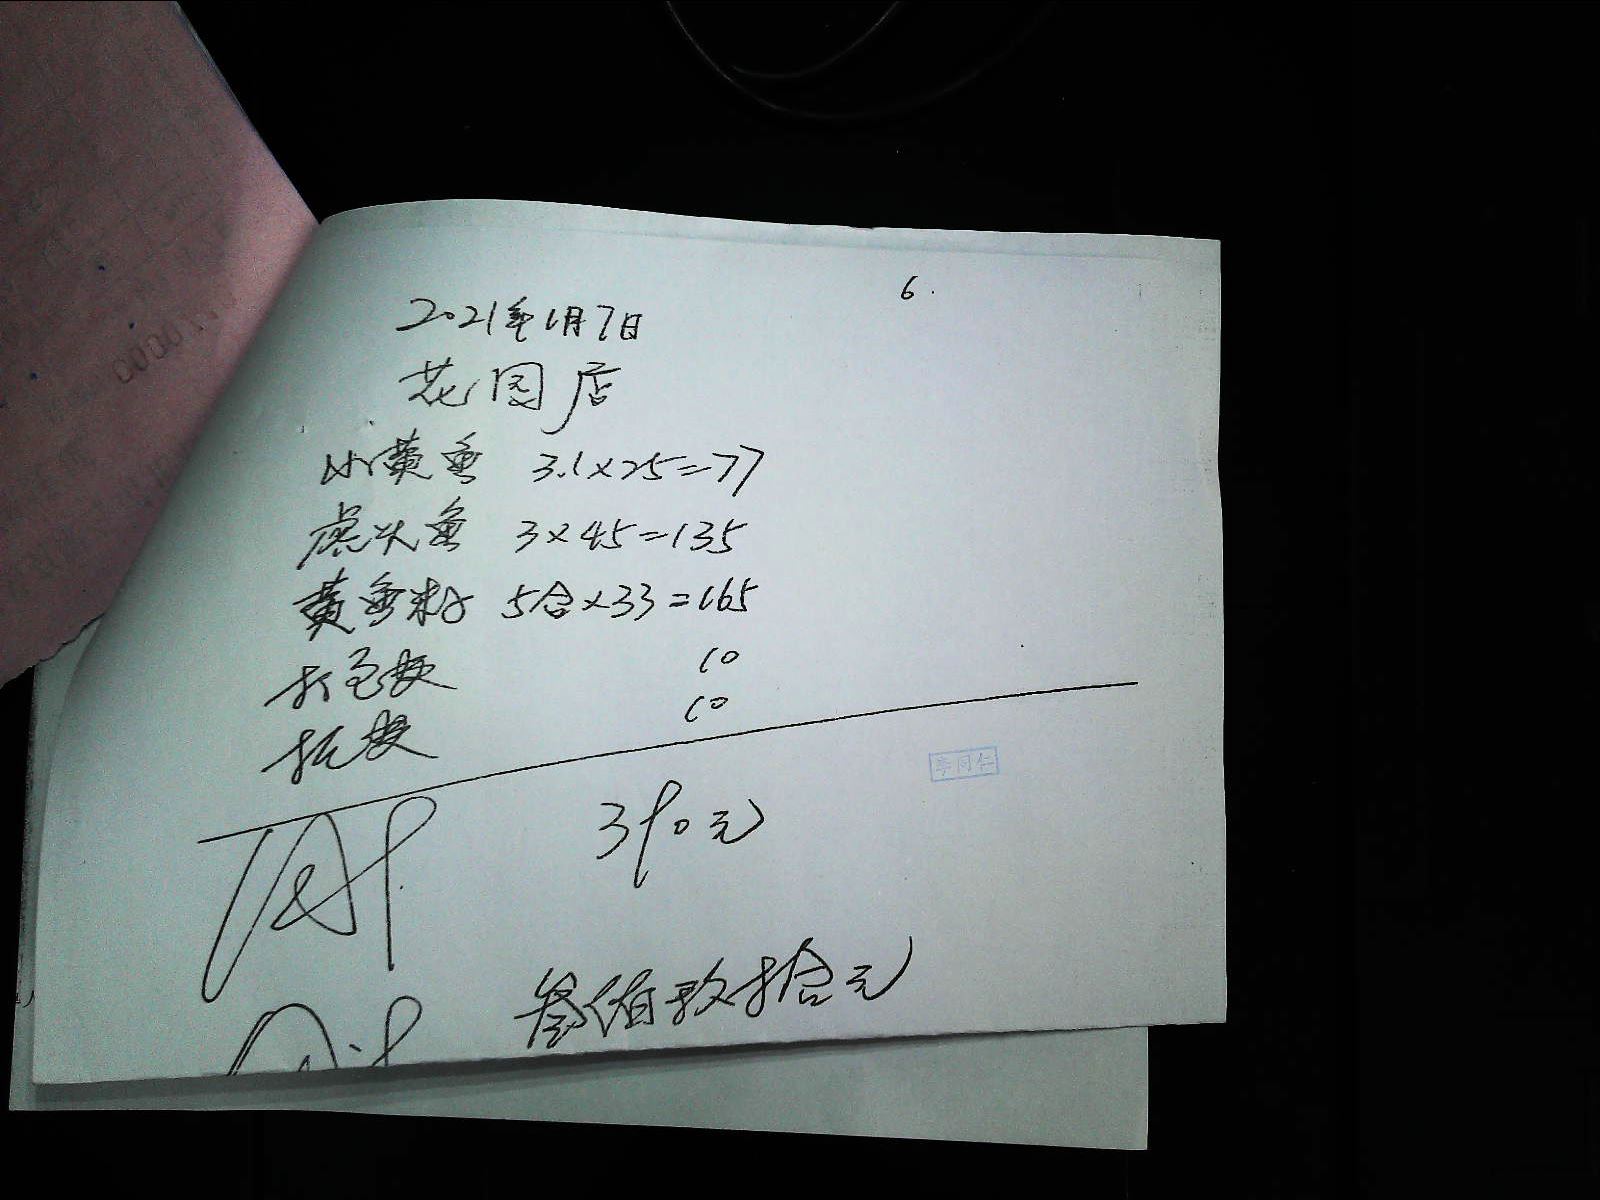 6.
2021年1月7日
花园店
小黄鱼 3.1×25=77
虎头鱼 3×45=135
黄鱼籽 5合×33=165
打包费 10
托费 10
390元
李同仁
叁佰玖拾元